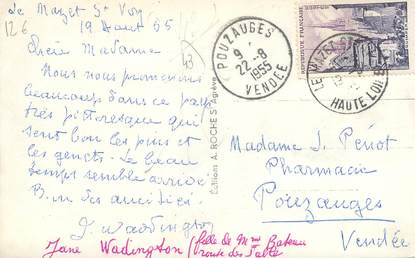 126
Le Mazet St Voy
19 Aout 55
Chère Madame
43
Nous nous promenons
beaucoup dans ce pays
très pittoresque qui
sent bon les pins et
les genêts. Le beau
temps semble arrivé
J. Waddington
Jane Wadington (fille de Mme Bateau
route des Sable
Editions A. ROCHE St Agrève
POUZAUGES
9
22-8
1955
VENDÉE
REPUBLIQUE FRANÇAISE
HAUTE LOIRE
Madame J. Périot
Pharmacie
Pouzauges
Vendée